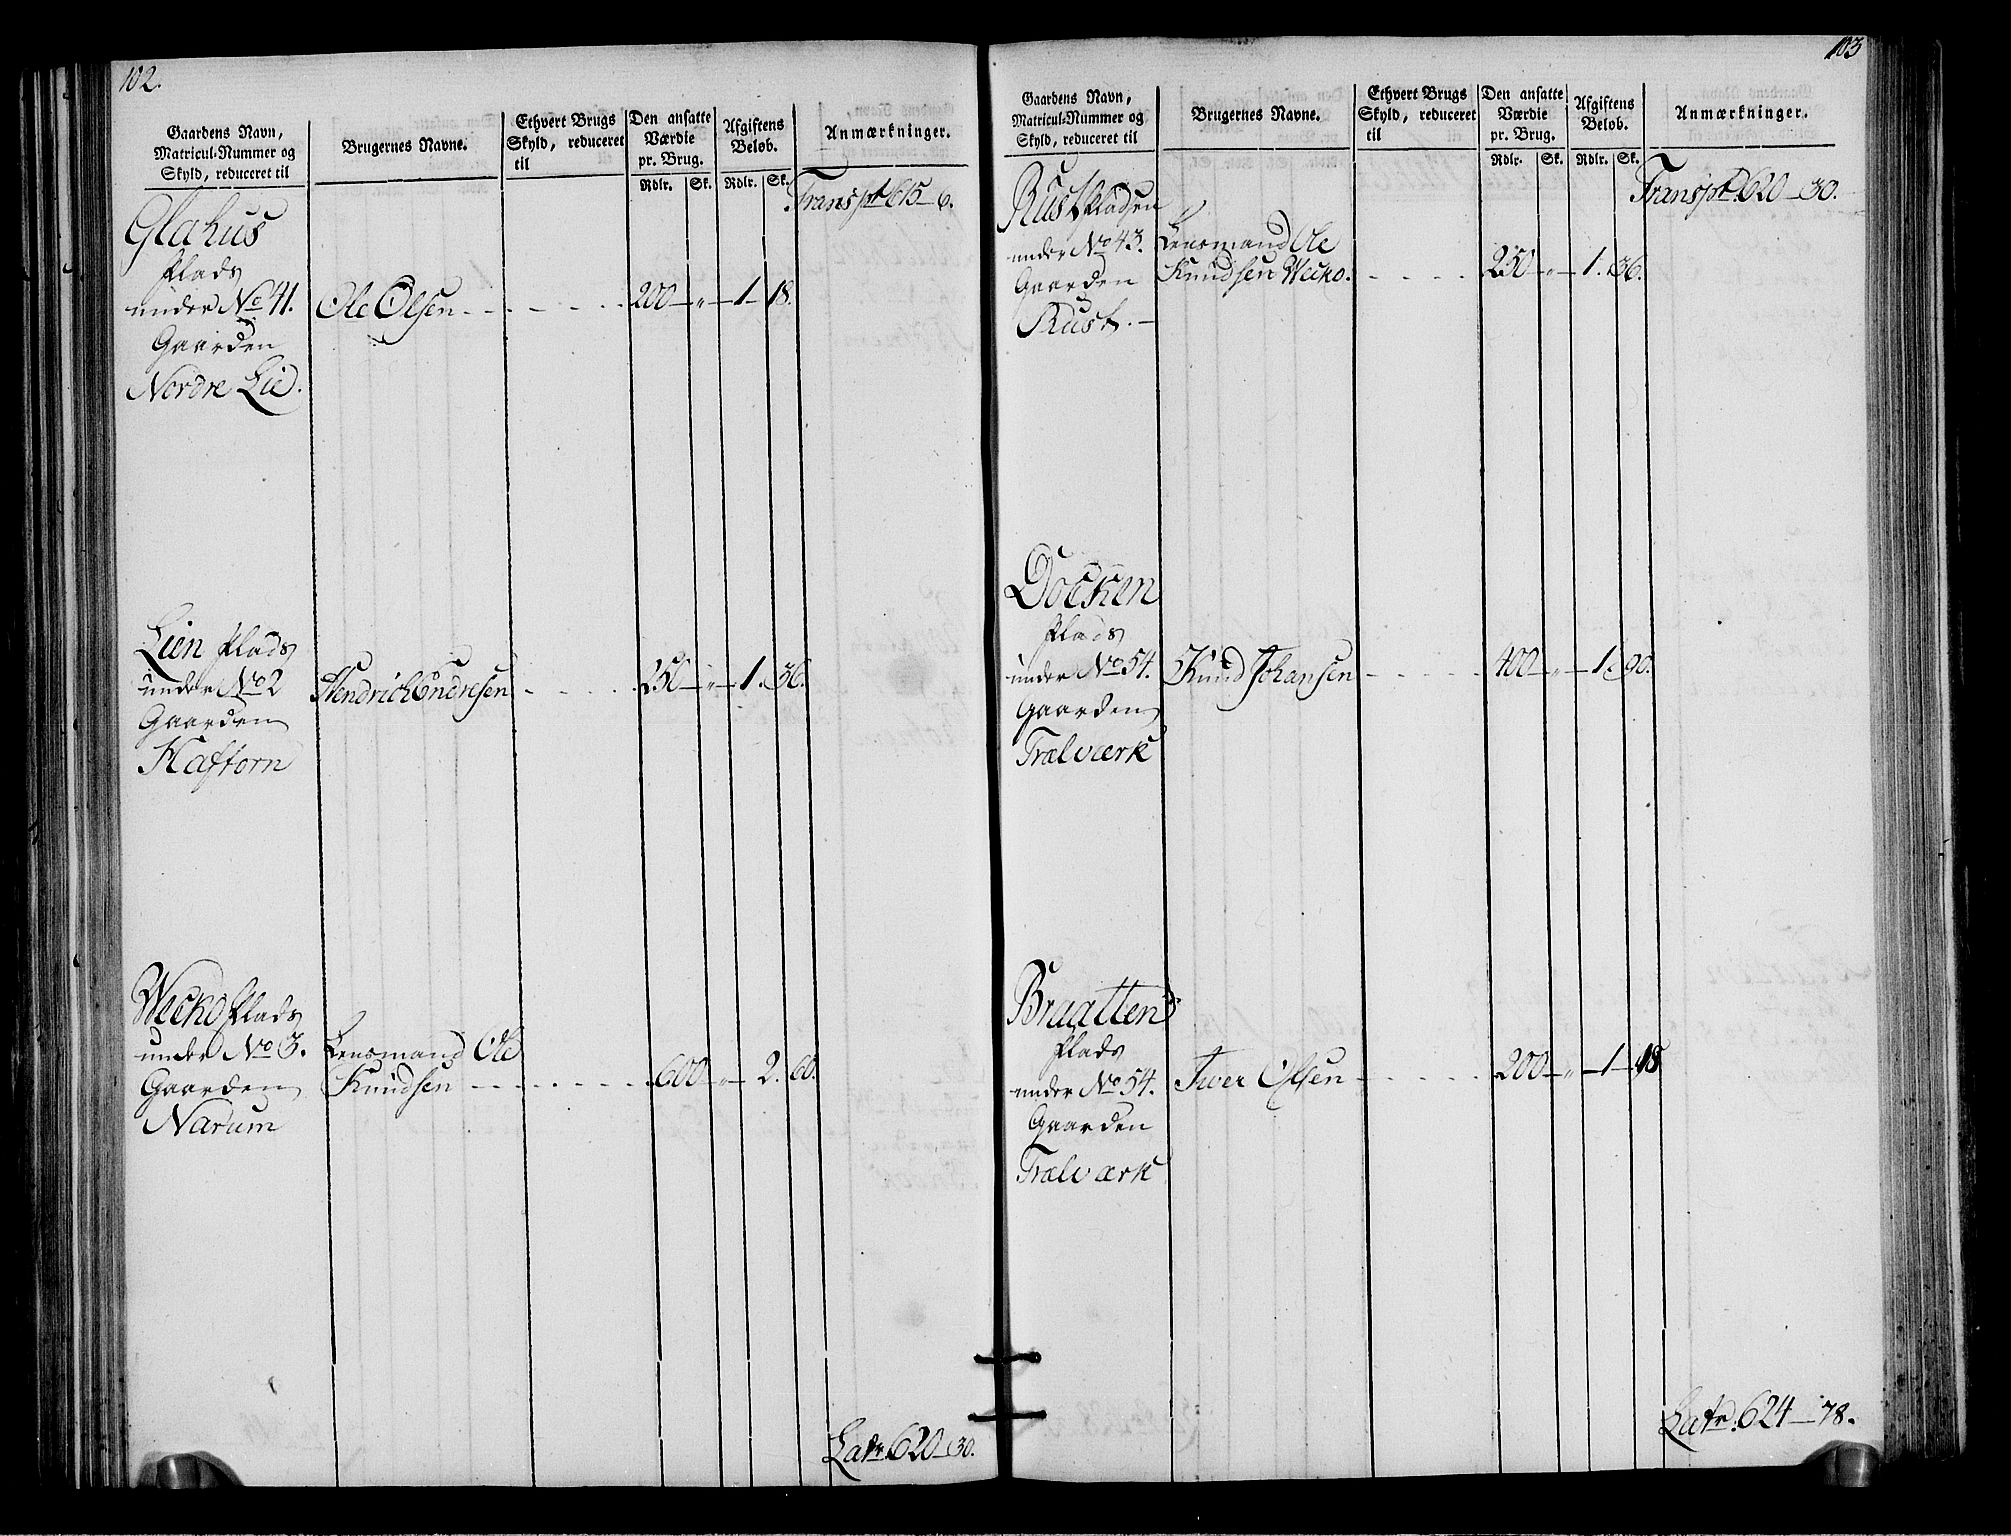 102.
Gaardens Navn, Matricul-Nummer og Skyld, reduceret til
Brugernes Navne.
Ethvert Brugs Skyld, reduceret til
Den ansatte Værdie pr. Brug.
Afgiftens Beløb.
Anmærkninger.
Rdlr. Sk. Rdlr. Sk.
Transpt 615 — 6.
Glahus
Plads
under No 41. Ole Olsen - - - - - 200 — „ — 1 — 18.
Gaarden
Nordre Lie.
Lien Plads
under No 2 Hendrich Endresen - - - - 250 — „ — 1. 36.
Gaarden
Haftorn
Wecko Plads
under No 3. Lensmand Ole
Gaarden Knudsen - - - - - - 600 — „ — 2. 60.
Narum
Latr 620 — 30.
103
Gaardens Navn, Matricul-Nummer og Skyld, reduceret til
Brugernes Navne.
Ethvert Brugs Skyld, reduceret til
Den ansatte Værdie pr. Brug.
Afgiftens Beløb.
Anmærkninger.
Rdlr. Sk. Rdlr. Sk.
Transpt. 620 — 30.
Rust Pladsen
under No 43. Lensmand Ole
Gaarden Knudsen Wecko. - - - - 250 — „ — 1. 36.
Rust. —
Docken
Plads
under No 54. Knud Johansen - - - - - 400 — „ — 1. 90.
Gaarden
Trælværk
Braatten
Plads
under No 54. Iver Olsen - - - - - 200 — „ — 1 — 18
Gaarden
Trælværk
Latr. 624 — 78.